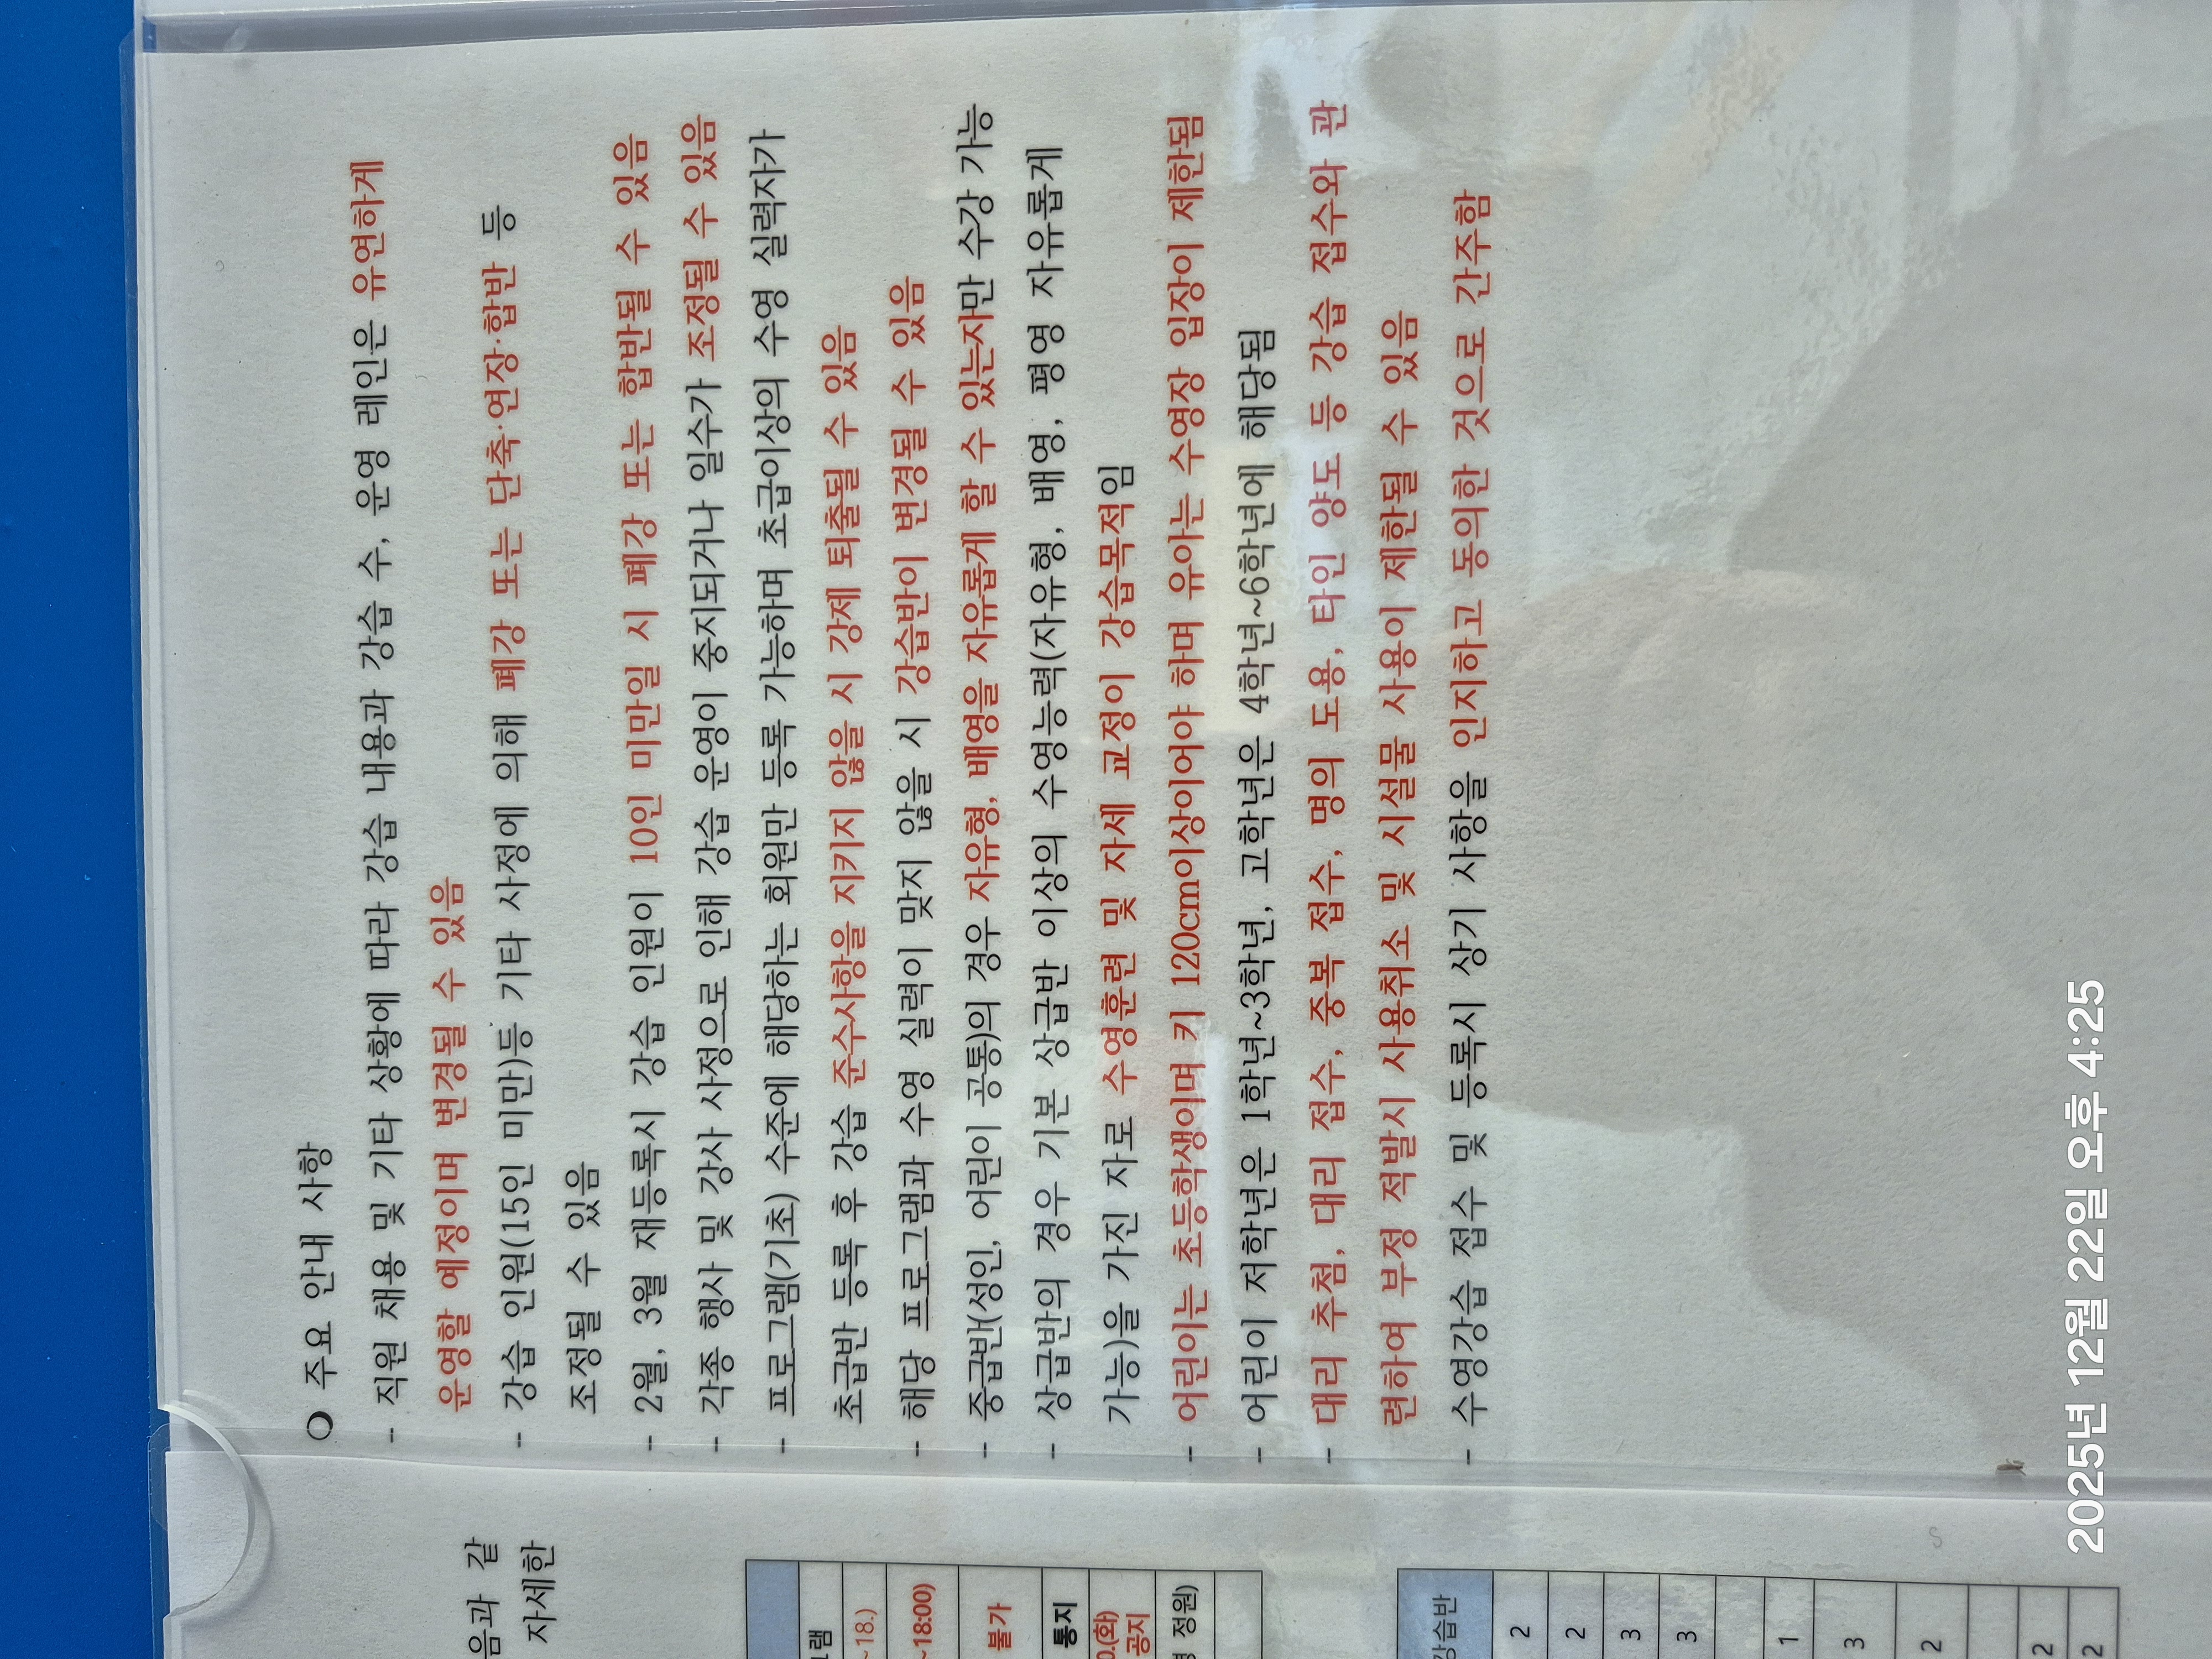 ○ 주요 안내 사항
- 직원 채용 및 기타 상황에 따라 강습 내용과 강습 수, 운영 레인은 유연하게
운영할 예정이며 변경될 수 있음
- 강습 인원(15인 미만)등 기타 사정에 의해 폐강 또는 단축·연장·합반 등
조정될 수 있음
- 2월, 3월 재등록시 강습 인원이 10인 미만일 시 폐강 또는 합반될 수 있음
- 각종 행사 및 강사 사정으로 인해 강습 운영이 중지되거나 일수가 조정될 수 있음
- 프로그램(기초) 수준에 해당하는 회원만 등록 가능하며 초급이상의 수영 실력자가
초급반 등록 후 강습 준수사항을 지키지 않을 시 강제 퇴출될 수 있음
- 해당 프로그램과 수영 실력이 맞지 않을 시 강습반이 변경될 수 있음
- 중급반(성인, 어린이 공통)의 경우 자유형, 배영을 자유롭게 할 수 있는자만 수강 가능
- 상급반의 경우 기본 상급반 이상의 수영능력(자유형, 배영, 평영 자유롭게
가능)을 가진 자로 수영훈련 및 자세 교정이 강습목적임
- 어린이는 초등학생이며 키 120cm이상이어야 하며 유아는 수영장 입장이 제한됨
- 어린이 저학년은 1학년~3학년, 고학년은 4학년~6학년에 해당됨
- 대리 추첨, 대리 접수, 중복 접수, 명의 도용, 타인 양도 등 강습 접수와 관
련하여 부정 적발시 사용취소 및 시설물 사용이 제한될 수 있음
- 수영강습 접수 및 등록시 상기 사항을 인지하고 동의한 것으로 간주함
음과 같
자세한
램
~18.)
~18:00)
불가
통지
0.(화)
공지
정원)
강습반
2
2
3
3
1
3
2
2
2
2025년 12월 22일 오후 4:25